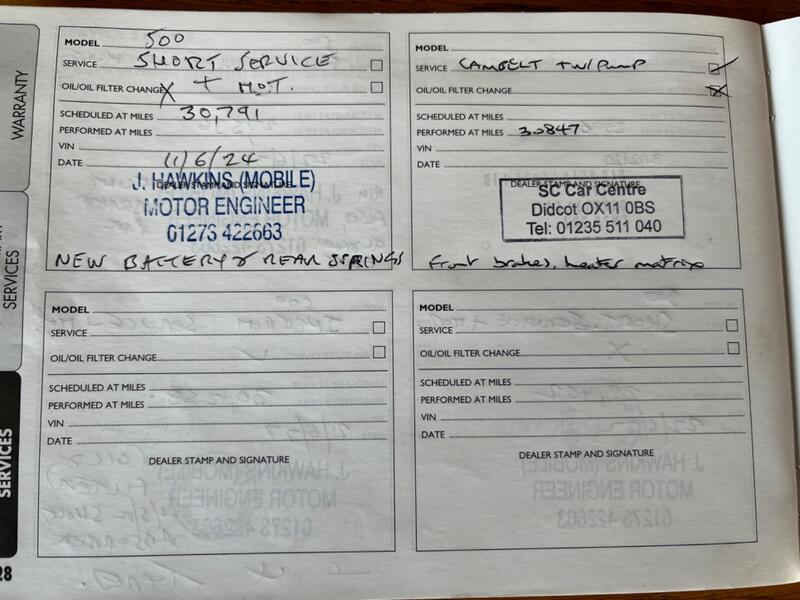 WARRANTY
SERVICES
SERVICES
28
MODEL 500
SERVICE SHORT SERVICE
OIL/OIL FILTER CHANGE X + MOT.
SCHEDULED AT MILES 30,791
PERFORMED AT MILES
VIN
DATE 11/6/24
DEALER STAMP AND SIGNATURE
J. HAWKINS (MOBILE)
MOTOR ENGINEER
01273 422663
NEW BATTERY & REAR SPRINGS
MODEL
SERVICE CAMBELT + W/PUMP
OIL/OIL FILTER CHANGE
SCHEDULED AT MILES
PERFORMED AT MILES 30847
VIN
DATE
DEALER STAMP AND SIGNATURE
SC Car Centre
Didcot OX11 0BS
Tel: 01235 511 040
front brakes, heater matrix
MODEL
SERVICE
OIL/OIL FILTER CHANGE
SCHEDULED AT MILES
PERFORMED AT MILES
VIN
DATE
DEALER STAMP AND SIGNATURE
MODEL
SERVICE
OIL/OIL FILTER CHANGE
SCHEDULED AT MILES
PERFORMED AT MILES
VIN
DATE
DEALER STAMP AND SIGNATURE